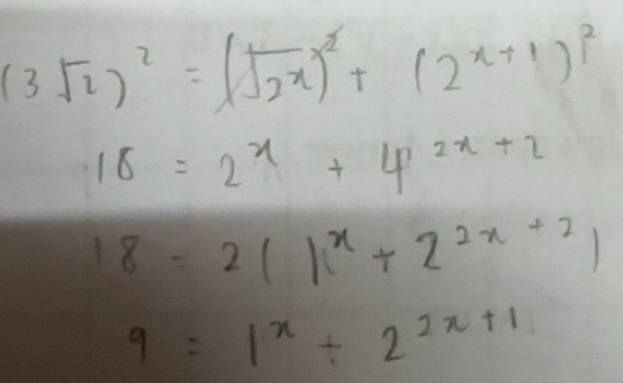 (3√2)² = (√2ˣ)² + (2ˣ⁺¹)²
18 = 2ˣ + 4²ˣ⁺²
18 = 2(1ˣ + 2²ˣ⁺²)
9 = 1ˣ + 2²ˣ⁺¹